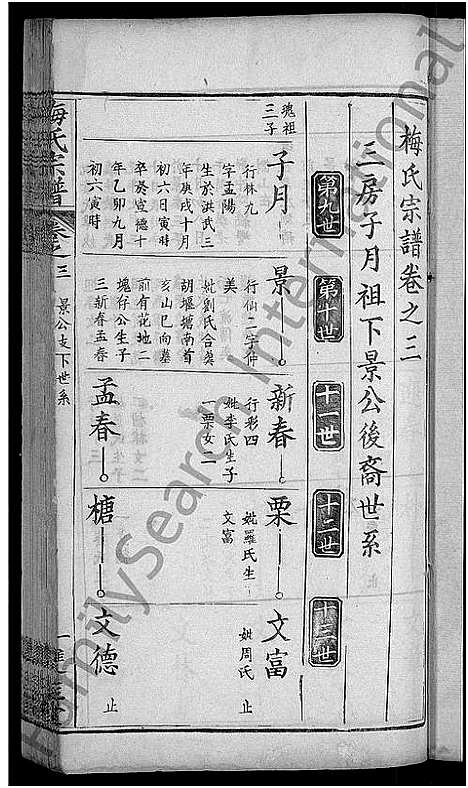 梅氏宗譜卷之三
三房子月祖下景公後裔世系
第九世
第十世
十一世
十二世
十三世
瑰祖
三子
子月
行林九
字孟陽
生於洪武三
年庚戌十月
初六日寅時
卒於宣德十
年乙卯九月
初六寅時
景
行仙二字仲
美
妣劉氏合奠
胡堰塘南首
亥山巳向墓
前有花地二
塊仔公生子
三新春孟春
新春
行彩四
妣李氏生子
一栗女二
栗
妣羅氏生
文富
文富
妣周氏
止
孟春
榶
文德
止
梅氏宗譜
卷之三
景公支下世系
一
FamilySearch International